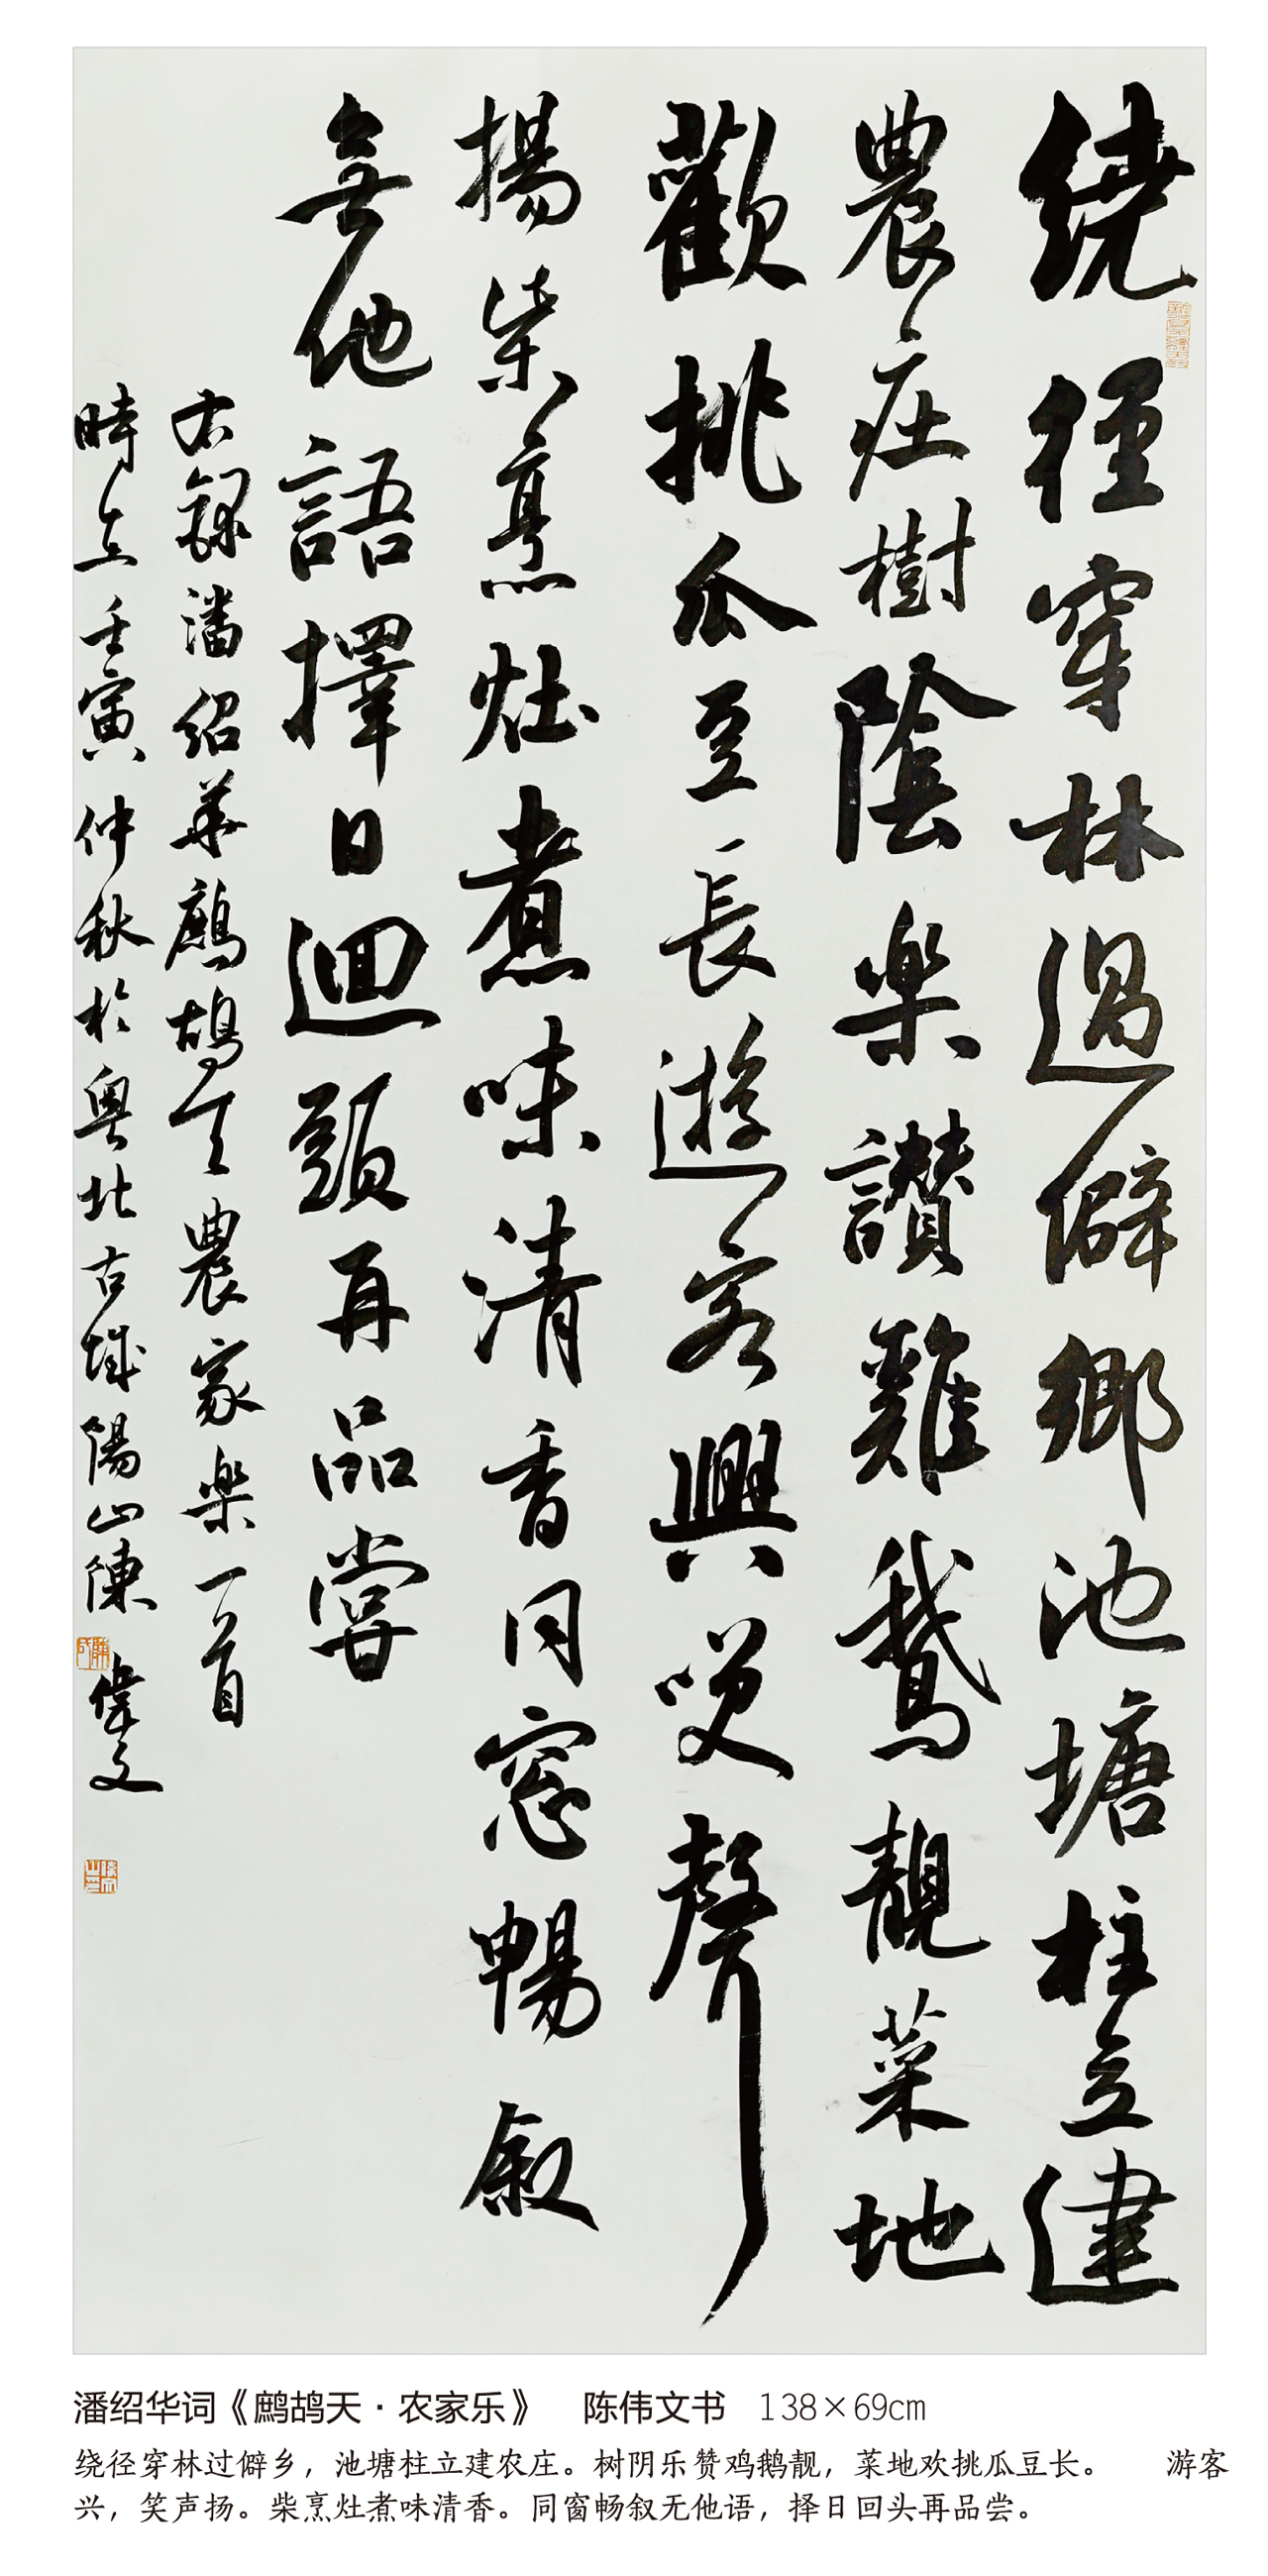 绕径穿林過僻鄉池塘柱立建
農庄樹陰楽讃雞鹅靚菜地
歡挑瓜豆長遊客興笑聲
揚柴烹灶煮味清香同窓暢叙
無他語擇日迴頭再品嘗
右録潘绍華鷓鴣天農家楽一首
時在壬寅仲秋於粤北古城陽山陳偉文
潘绍华词《鹧鸪天·农家乐》 陈伟文书 138×69cm
绕径穿林过僻乡，池塘柱立建农庄。树阴乐赞鸡鹅靓，菜地欢挑瓜豆长。 游客
兴，笑声扬。柴烹灶煮味清香。同窗畅叙无他语，择日回头再品尝。